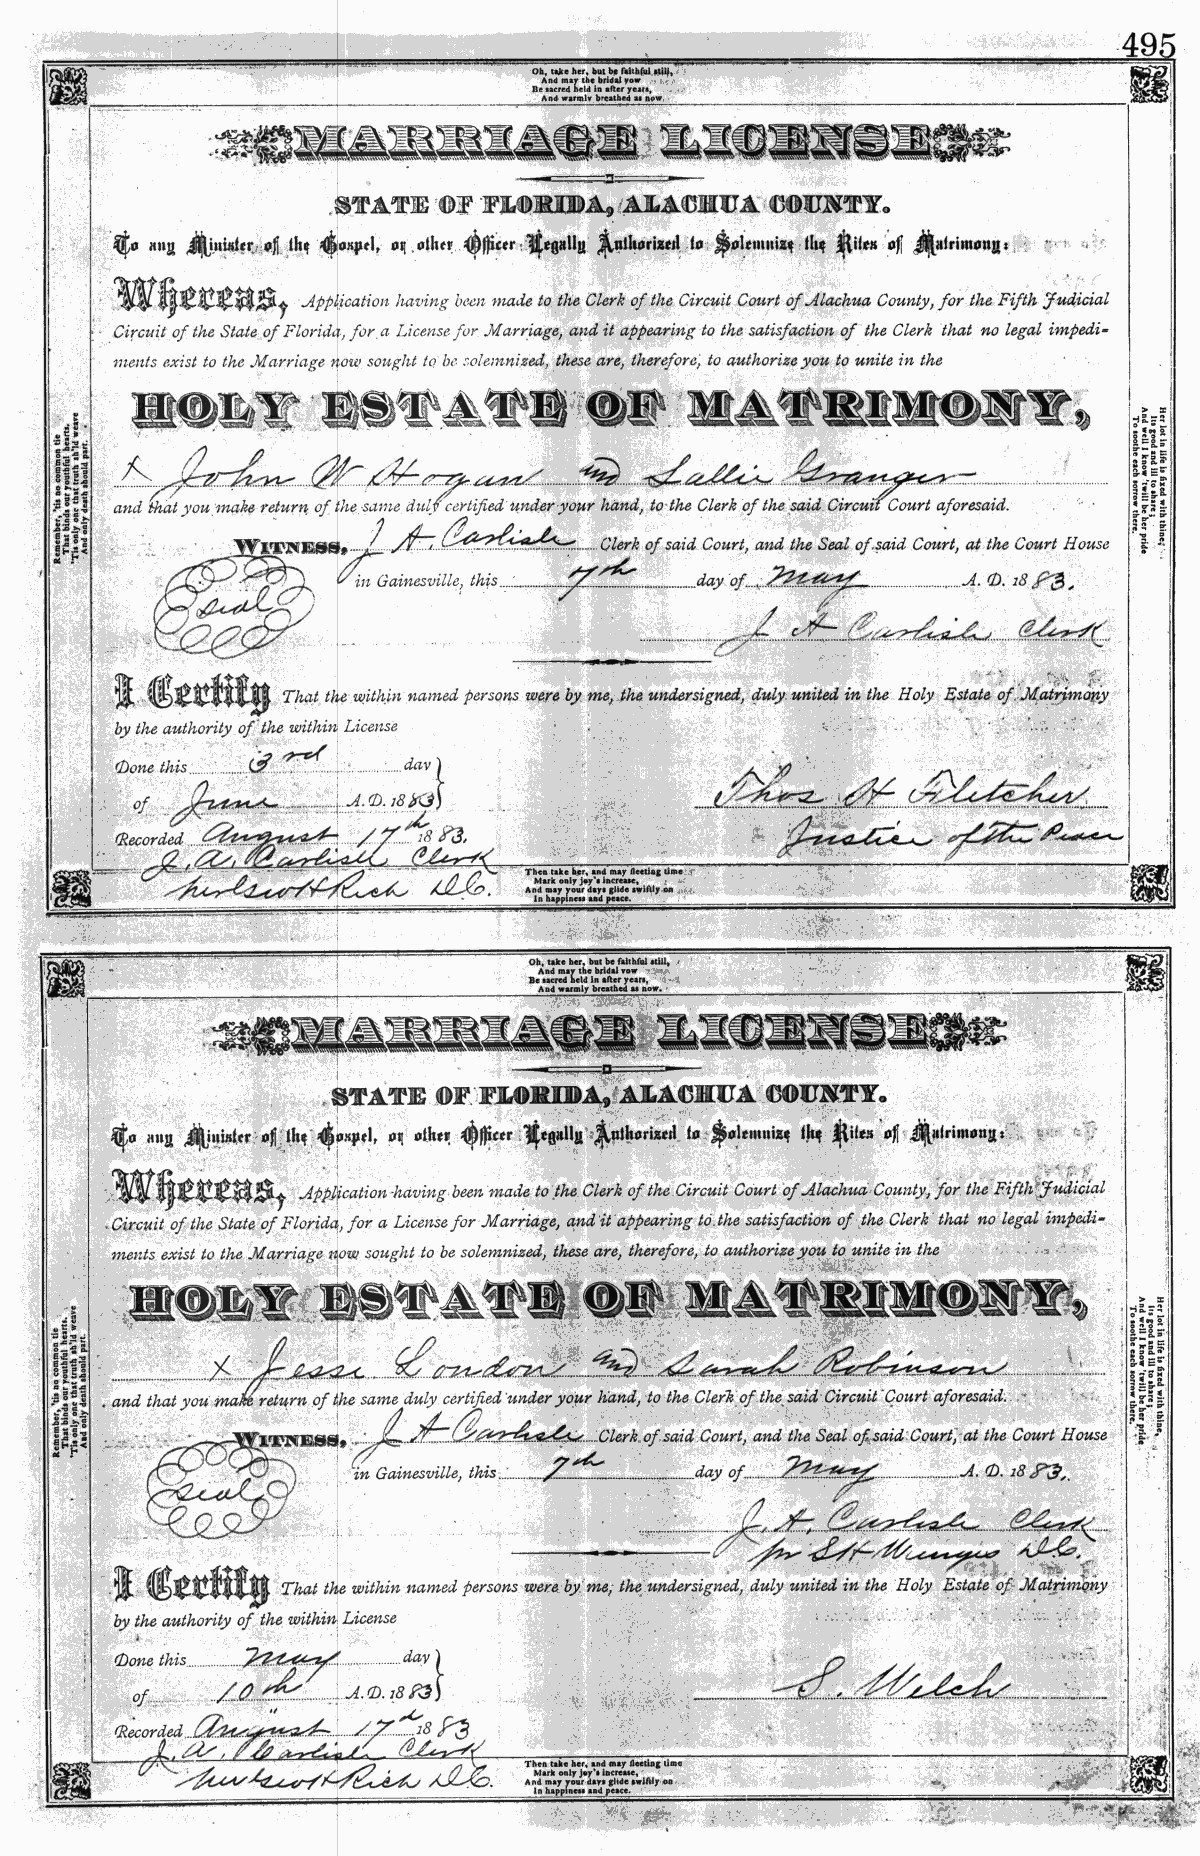 495
Oh, take her, but be faithful still,
And may the bridal vow
Be sacred held in after years,
And warmly breathed as now.
MARRIAGE LICENSE
STATE OF FLORIDA, ALACHUA COUNTY.
To any Minister of the Gospel, or other Officer Legally Authorized to Solemnize the Rites of Matrimony:
Whereas, Application having been made to the Clerk of the Circuit Court of Alachua County, for the Fifth Judicial
Circuit of the State of Florida, for a License for Marriage, and it appearing to the satisfaction of the Clerk that no legal impedi-
ments exist to the Marriage now sought to be solemnized, these are, therefore, to authorize you to unite in the
HOLY ESTATE OF MATRIMONY,
x John W Hogan and Sallie Granger
and that you make return of the same duly certified under your hand, to the Clerk of the said Circuit Court aforesaid.
WITNESS, J A. Carlisle Clerk of said Court, and the Seal of said Court, at the Court House
seal
in Gainesville, this 7th day of May A. D. 1883.
J A Carlisle Clerk
I Certify That the within named persons were by me, the undersigned, duly united in the Holy Estate of Matrimony
by the authority of the within License
Done this 3rd day
of June A. D. 1883
Thos H Fletcher
Recorded August 17th 1883.
Justice of the Peace
J. A. Carlisle Clerk
Rich D.C.
Then take her, and may fleeting time
Mark only joy's increase,
And may your days glide swiftly on
In happiness and peace.
Remember, 'tis no common tie
That binds our youthful hearts,
'Tis only one that truth sh'ld weave
And only death should part.
Her lot in life is fixed with thine,
Its good and ill to share;
And well I know 'twill be her pride
To soothe each sorrow there.
Oh, take her, but be faithful still,
And may the bridal vow
Be sacred held in after years,
And warmly breathed as now.
MARRIAGE LICENSE
STATE OF FLORIDA, ALACHUA COUNTY.
To any Minister of the Gospel, or other Officer Legally Authorized to Solemnize the Rites of Matrimony:
Whereas, Application having been made to the Clerk of the Circuit Court of Alachua County, for the Fifth Judicial
Circuit of the State of Florida, for a License for Marriage, and it appearing to the satisfaction of the Clerk that no legal impedi-
ments exist to the Marriage now sought to be solemnized, these are, therefore, to authorize you to unite in the
HOLY ESTATE OF MATRIMONY,
x Jesse London and Sarah Robinson
and that you make return of the same duly certified under your hand, to the Clerk of the said Circuit Court aforesaid.
WITNESS, J A Carlisle Clerk of said Court, and the Seal of said Court, at the Court House
seal
in Gainesville, this 7th day of May A. D. 1883.
J. A. Carlisle Clerk
pr S H D.C.
I Certify That the within named persons were by me, the undersigned, duly united in the Holy Estate of Matrimony
by the authority of the within License
Done this May day
of 10th A. D. 1883
S. Welch
Recorded August 17d 1883
J. A. Carlisle Clerk
Rich D.C.
Then take her, and may fleeting time
Mark only joy's increase,
And may your days glide swiftly on
In happiness and peace.
Remember, 'tis no common tie
That binds our youthful hearts,
'Tis only one that truth sh'ld weave
And only death should part.
Her lot in life is fixed with thine,
Its good and ill to share;
And well I know 'twill be her pride
To soothe each sorrow there.